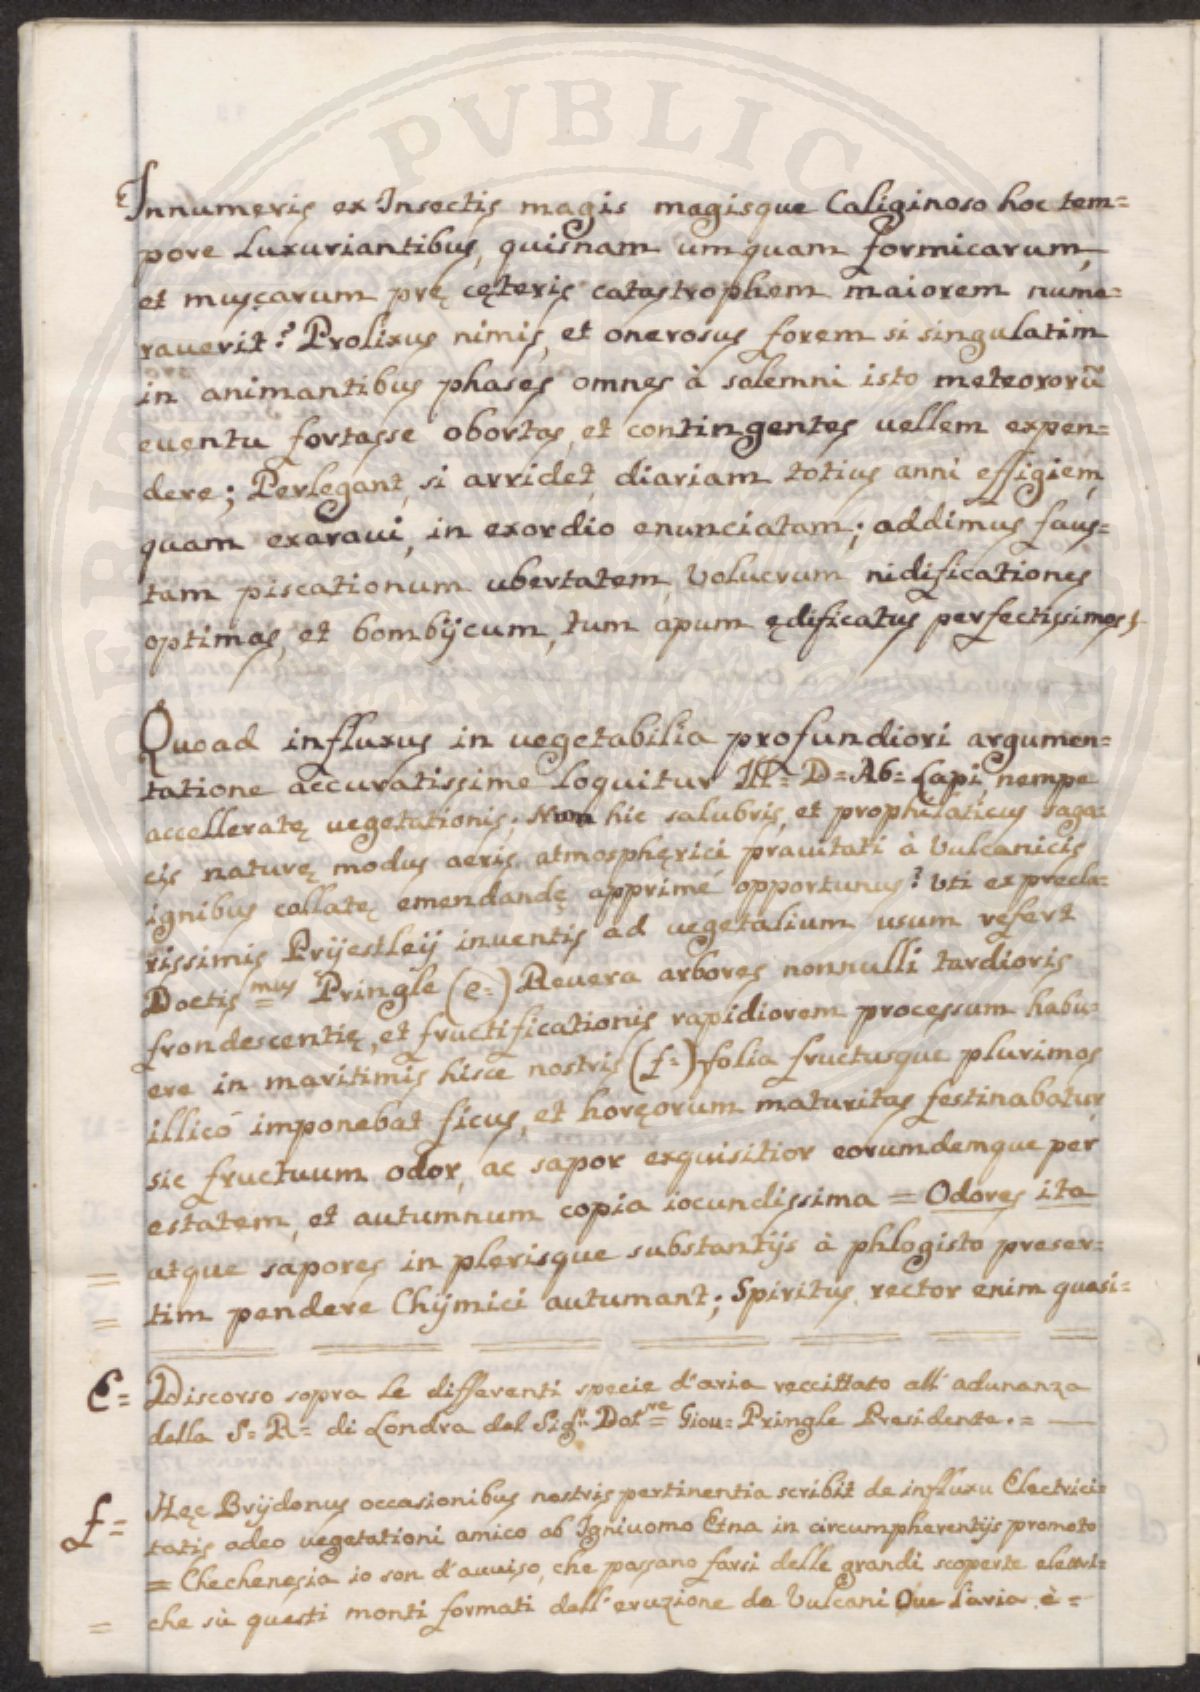 Innumeris ex Insectis magis magisque Caliginoso hoc tem=
pore Luxuriantibus, quisnam umquam formicarum,
et muscarum prę cęteris catastrophem maiorem nume=
rauerit? Prolixus nimis, et onerosus forem si singulatim
in animantibus phases omnes à solemni isto meteororũ
euentu fortasse obortas, et contingentes uellem expen=
dere; Perlegant, si arridet, diariam totius anni effigiem,
quam exaraui, in exordio enunciatam; addimus faus=
tam piscationum ubertatem, Volucrum nidificationes
optimas, et bombijcum, tum apum ędificatus perfectissimos;
Quoad influxus in uegetabilia profundiori argumen=
tatione accuratissime loquitur Ill= D= Ab= Lapi, nempe
accelleratę uegetationis; Num hic salubris, et prophilaticus saga=
cis naturę modus aeris atmosphęrici prauitati à Vulcanicis
ignibus collatę emendandę apprimé opportunus? Vti ex precla=
rissimis Prijestleij inuentis ad uegetalium usum refert
Doctis=mus Pringle (e=) Reuera arbores nonnulli tardioris
frondescentię, et fructificationis rapidiorem processum habu=
ere in maritimis hisce nostris (f=) folia fructusque plurimos
illicó imponebat ficus, et horęorum maturitas festinabatur,
sic fructuum odor, ac sapor exquisitior eorumdemque per
estatem, et autumnum copia iocundissima = Odores ita
= atque sapores in plerisque substantijs à phlogisto preser=
= tim pendere Chijmici autumant; Spiritus rector enim quasi=
e= Discorso sopra le differenti specie d'aria reccittato all' adunanza
della S= R= di Londra dal Sigr: Dot=re Giou= Pringle Presidente.=
f= Hęc Brijdonus occasionibus nostris pertinentia scribit de influxu Electrici=
tatis adeo uegetationi amico ab Igniuomo Etna in circumpherentijs promoto
= Chechenesia io son d'auuiso, che possano farsi delle grandi scoperte elettri=
= che sù questi monti formati dall' eruzione de Vulcani Oue l'aria è=